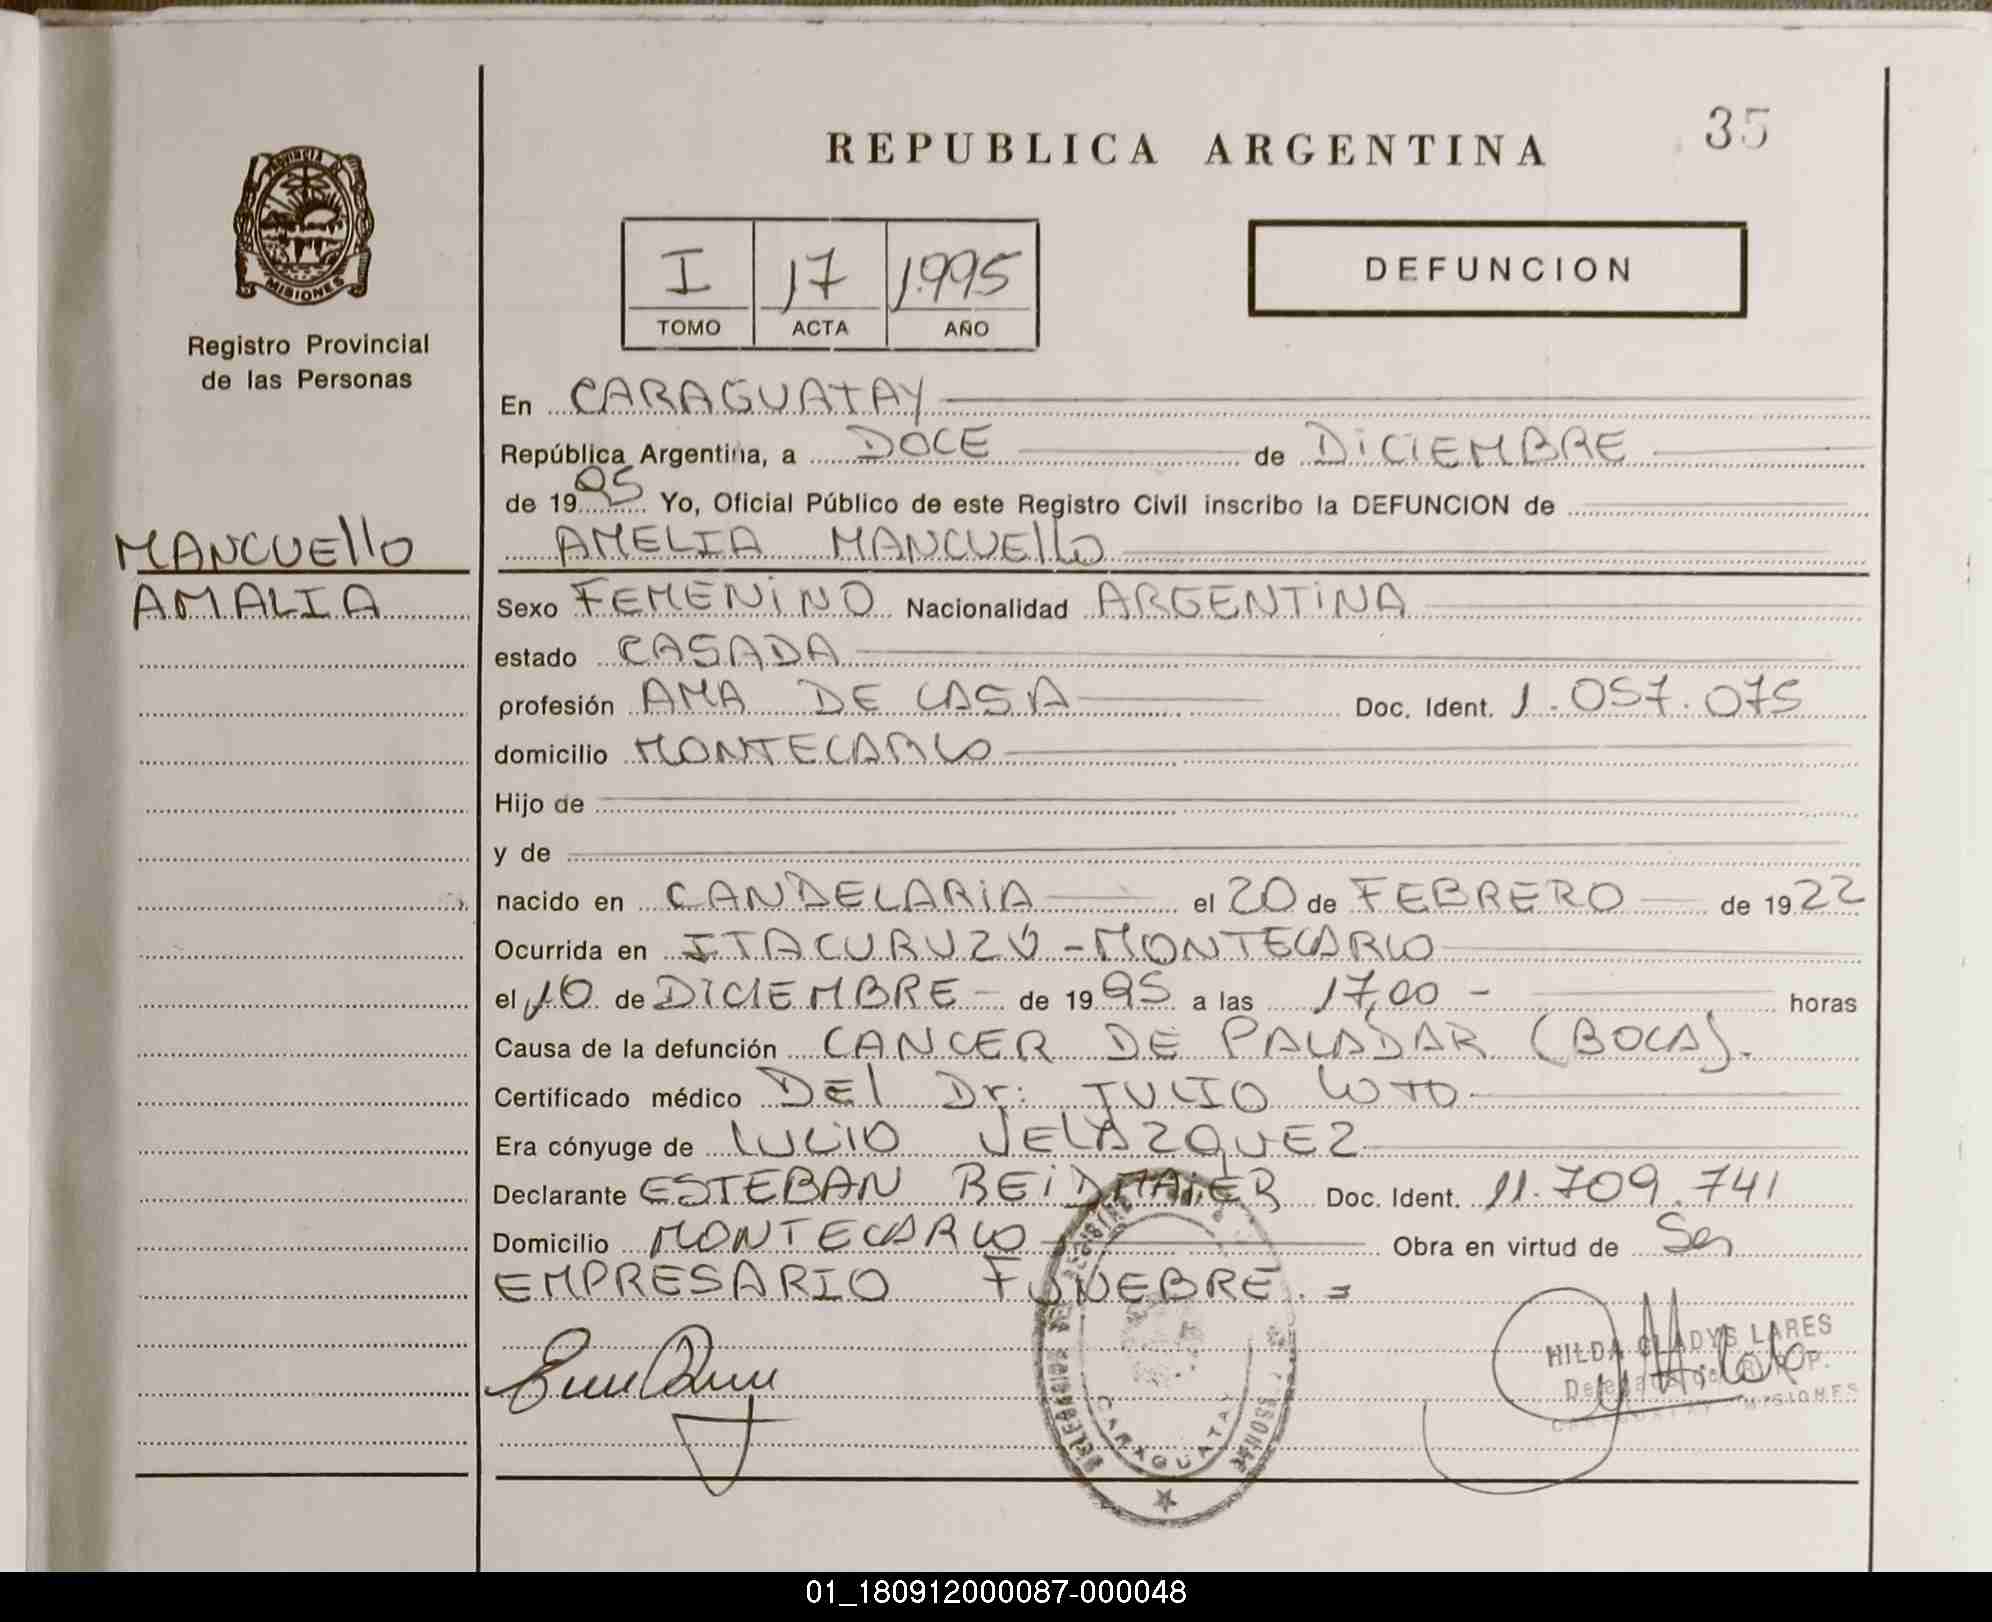 35
REPUBLICA ARGENTINA
PROVINCIA DE
MISIONES
Registro Provincial
de las Personas
I 17 1.995
TOMO ACTA AÑO
DEFUNCION
MANCUEllO
AMALIA
En CARAGUATAY
República Argentina, a DOCE de DiCiEMBRE
de 1995 Yo, Oficial Público de este Registro Civil inscribo la DEFUNCION de
AMELIA MANCUEllO
Sexo FEMENiNO Nacionalidad ARGENTiNA
estado CASADA
profesión AMA DE CASA Doc. Ident. 1.057.075
domicilio MONTECARLO
Hijo de
y de
nacido en CANDELARiA el 20 de FEBRERO de 1922
Ocurrida en ITACURUZÚ - MONTECARLO
el 10 de DICIEMBRE - de 1995 a las 17,00 - horas
Causa de la defunción CANCER DE PALADAR (BOCA).
Certificado médico DEl Dr: JULIO LOTO
Era cónyuge de LUCiO VELAZQUEZ
Declarante ESTEBAN REiDMAiER Doc. Ident. 11.709.741
Domicilio MONTECARLO Obra en virtud de Ser
EMPRESARIO FUNEBRE. =
HILDA GLADYS LARES
CARAGUATAY MISIONES
CARAGUATAY
01_180912000087-000048